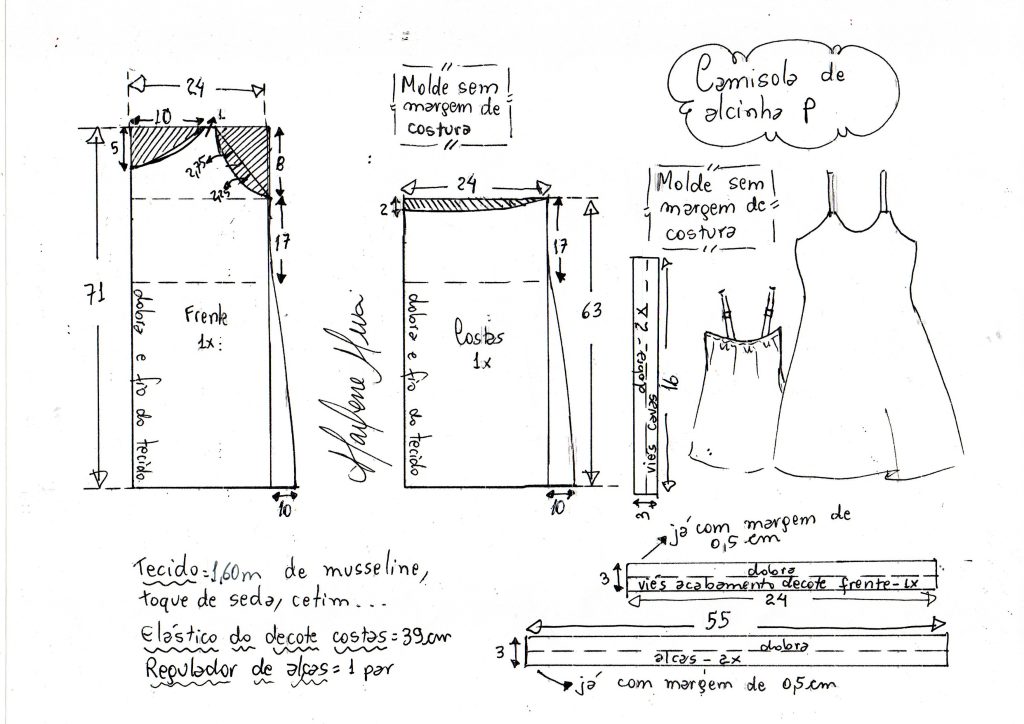 Camisola de
alcinha P
Molde sem
margem de
costura
Molde sem
margem de
costura
24
10
1
5
8
2,75
2,25
17
71
Frente
1x
dobra e fio do tecido
10
24
2
17
63
Costas
1x
dobra e fio do tecido
10
Marlene Mukai
dobra - 2x
viés cavas
16
3
já com margem de
0,5 cm
3
dobra
viés acabamento decote frente - 1x
24
55
3
dobra
alças - 2x
já com margem de 0,5 cm
Tecido = 1,60m de musseline,
toque de seda, cetim...
Elástico do decote costas = 39cm
Regulador de alças = 1 par